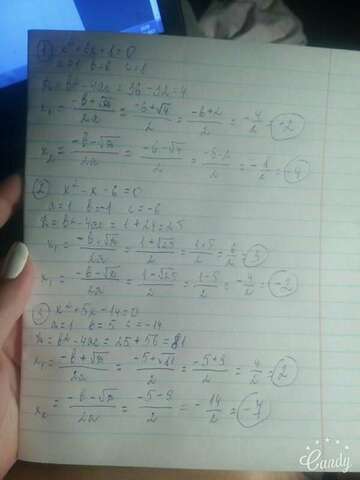 ① x²+6x+8=0
a=1 b=6 c=8
D=b²-4ac=36-32=4
x₁=(-b+√D)/2a=(-6+√4)/2=(-6+2)/2=-4/2=-2
x₂=(-b-√D)/2a=(-6-√4)/2
② x²-x-6=0
a=1 b=-1 c=-6
D=b²-4ac=1+24=25
x₁=(-b+√D)/2a=(1+√25)/2=(1+5)/2=6/2=3
(-b-√D)/2a=(1-√25)/2=(1-5)/2=-4/2=-2
x²+5x-14=0
a=1 b=5 c=-14
D=b²-4ac=25+56=81
x₁=(-b+√D)/2a=(-5+√81)/2=(-5+9)/2=4/2=2
x₂=(-b-√D)/2a=(-5-9)/2=-14/2=-7
Candy